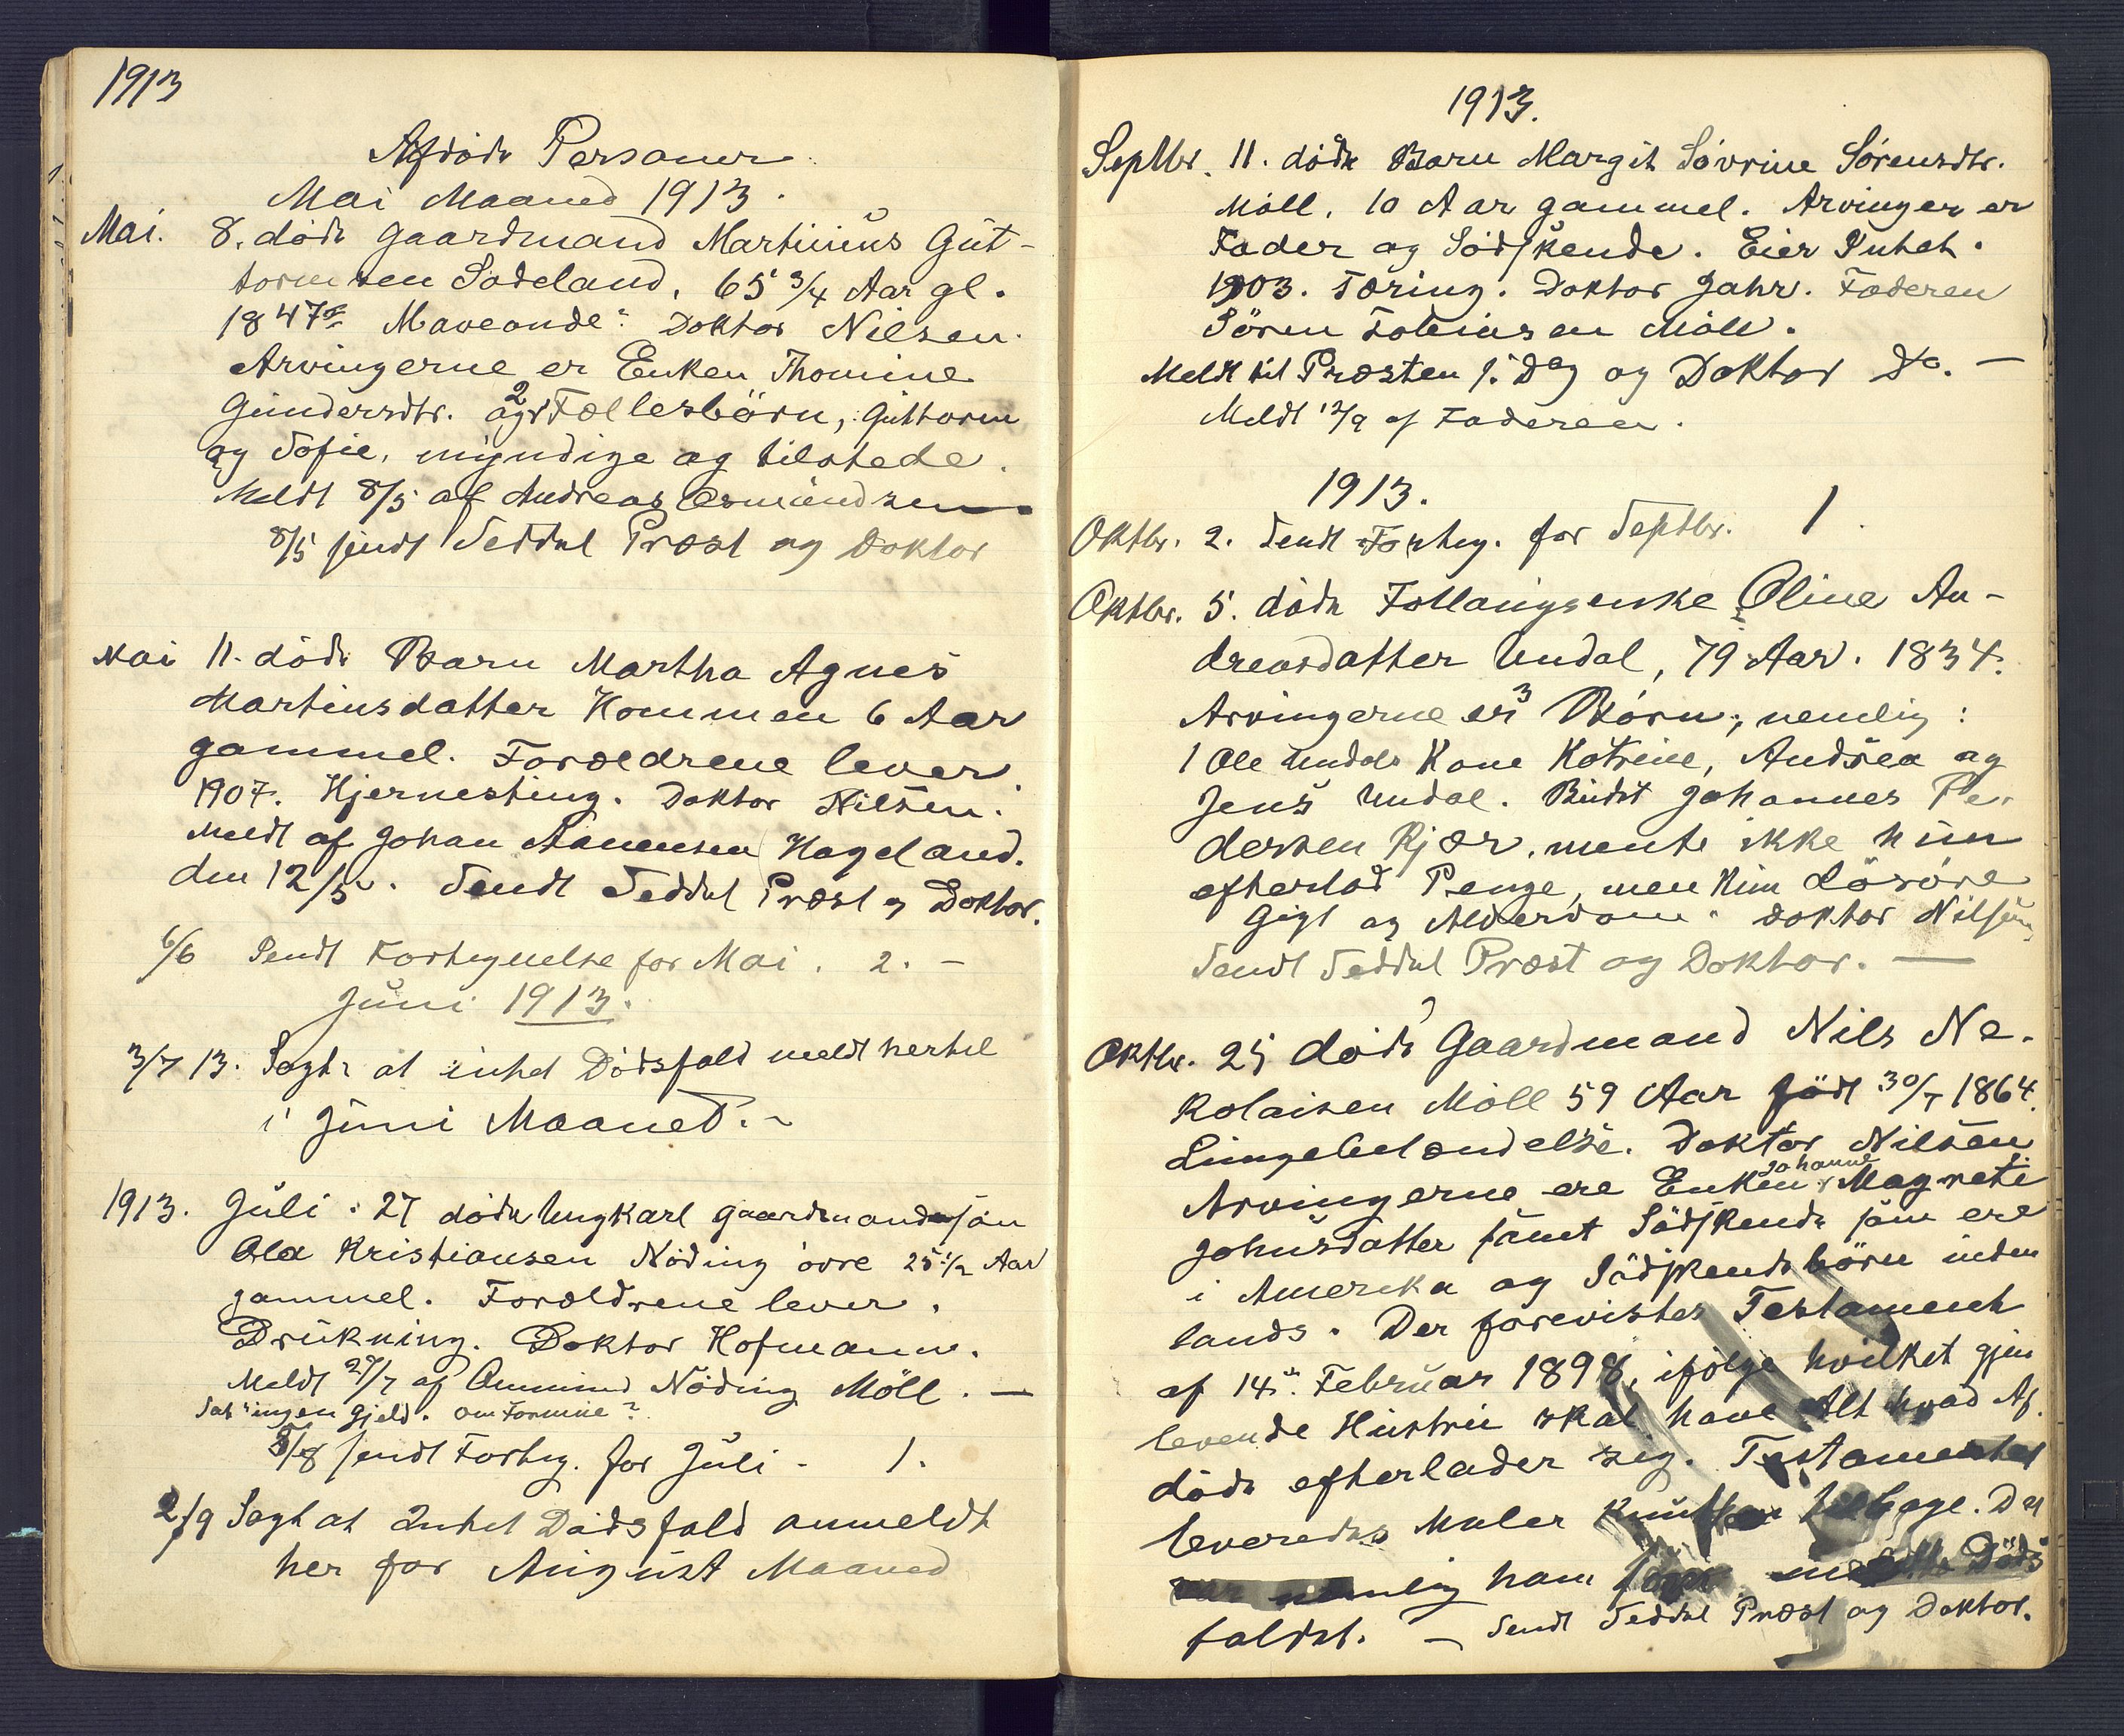 1913
Afdöde Personer
Mai Maaned 1913.
Mai. 8. döde Gaardmand Martinius Gut-
tormsen Sodeland, 65 3/4 Aar gl.
1847 Maveonde? Doktor Nilsen.
Arvingerne er Enken Thomine
Gundersdtr. og 2 Fællesbörn, Guttorm
og Sofie, myndige og tilstede.
Meldt 8/5 af Andreas Osmundsen
8/5 sendt Seddel Præst og Doktor
Mai 11. döde Barn Martha Agnes
Martinsdatter Kommen 6 Aar
gammel. Forældrene lever.
1907. Hjernesting. Doktor Nilsen.
Meldt af Johan Aanensen Hageland.
den 12/5. Sendt Seddel Præst og Doktor.
6/6 Sendt Fortegnelse for Mai. 2. -
Juni 1913.
3/7 13. Sagt at intet Dödsfald meldt hertil
i Juni Maaned. -
1913. Juli. 27 döde Ungkarl Gaardmandssön
Ola Kristiansen Nöding övre 25 1/2 Aar
gammel. Forældrene lever.
Drukning. Doktor Hofmann.
Meldt 29/7 af Ommund Nöding Möll. -
ingen Gjeld. om Formue?
5/8 sendt Forteg. for Juli - 1.
2/9 Sagt at Intet Dödsfald anmeldt
her for August Maaned
1913.
Septbr. 11. döde Barn Margit Sövrine Sörensdtr.
Möll, 10 Aar gammel. Arvinger er
Fader og Södskende. Eier Intet.
1903. Tæring. Doktor Jahr. Faderen
Sören Tobiassen Möll.
Meldt til Præsten s. Dag og Doktor Do. -
Meldt 12/9 af Faderen.
1913.
Oktbr. 2. Sendt Forteg. for Septbr. 1
Oktbr. 5. döde Fattigenke Oline An-
dreasdatter Undal, 79 Aar. 1834.
Arvingerne er 3 Börn, nemlig:
1 Ole Undals Kone Katrine, Andrea og
Jens Undal. Budet Johannes Pe-
dersen Kjær, mente ikke hun
efterlod Penge, men kun Lösöre
Gigt og Alderdom. Doktor Nilsen
Sendt Seddel Præst og Doktor. -
Oktbr. 25 döde Gaardmand Nils Ne-
kolaisen Möll 59 Aar födt 30/7 1864.
Lungebetændelse. Doktor Nilsen
Arvingerne ere Enken Johanne Magrete
Johnsdatter samt Södskende som ere
i Amerika og Södskendebörn inden
lands. Der forevistes Testament
af 14. Februar 1898, ifölge hvilket gjen
levende Hustru skal have Alt hvad Af
döde efterlader sig. Testamentet
leveredes Maler Knutsen tilbage. Det
var nemlig ham som meldte Döds
faldet. - Sendt Seddel Præst og Doktor.